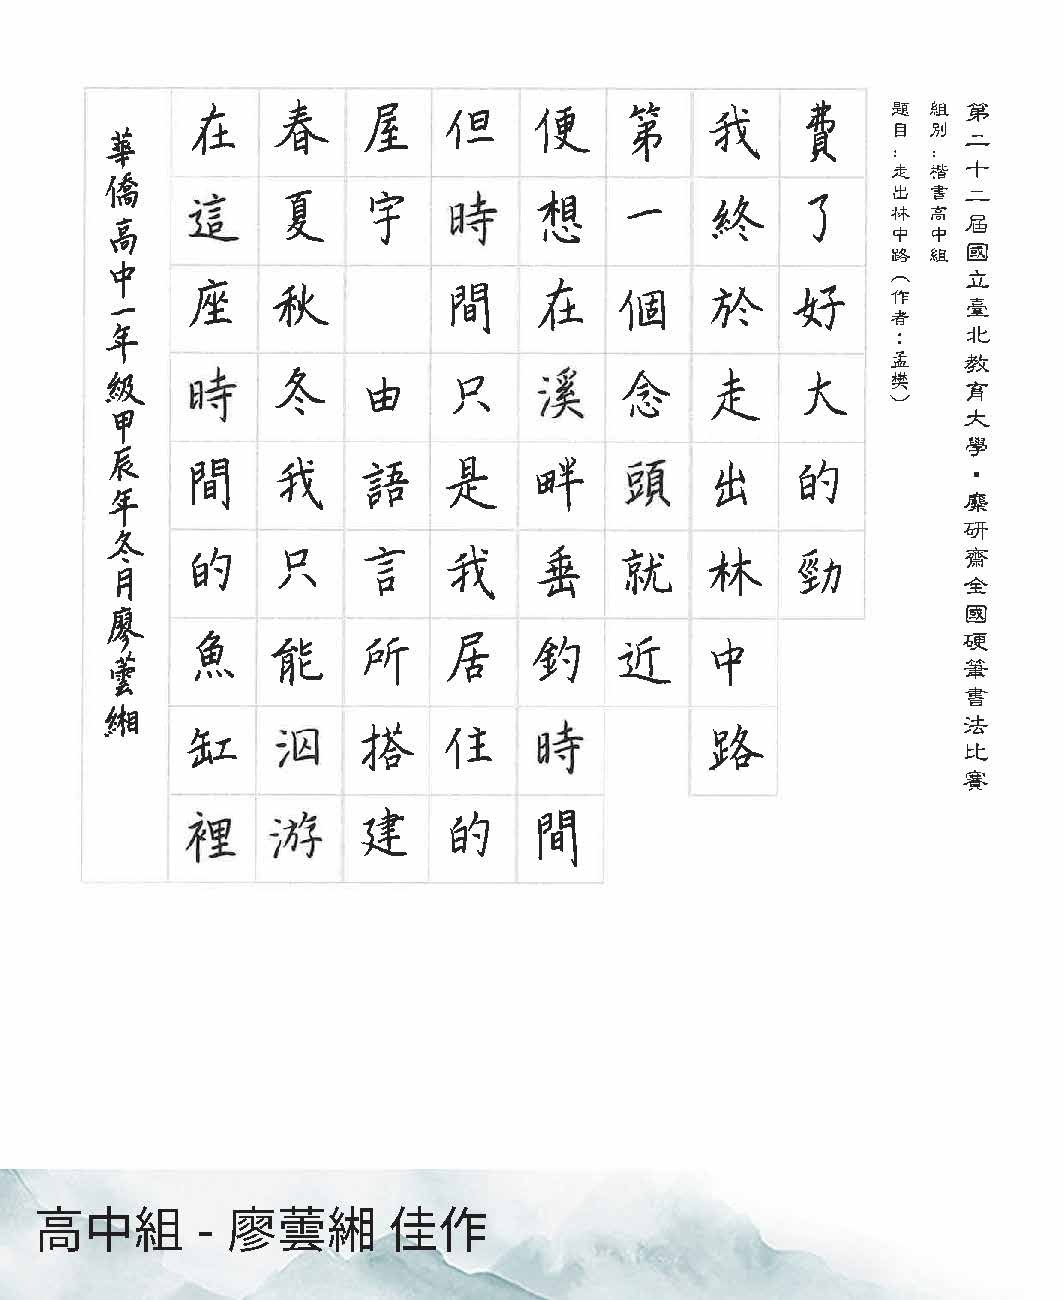 第二十二屆國立臺北教育大學・麋研齋全國硬筆書法比賽
組別：楷書高中組
題目：走出林中路（作者：孟樊）
費了好大的勁
我終於走出林中路
第一個念頭就近
便想在溪畔垂釣時間
但時間只是我居住的
屋宇　由語言所搭建
春夏秋冬我只能泅游
在這座時間的魚缸裡
華僑高中一年級甲辰年冬月廖蕓緗
高中組 - 廖蕓緗 佳作